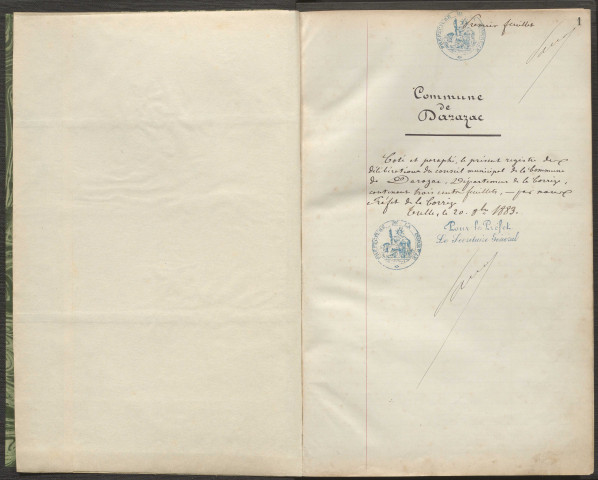 Premier feuillet
1
Commune
de
Darazac
Coté et paraphé, le présent registre de
délibérations du conseil municipal de la Commune
de Darazac, Département de la Corrèze,
contenant trois cents feuillets, — par nous
Préfet de la Corrèze
Tulle, le 20 9bre 1883.
Pour le Préfet
Le Secrétaire Général